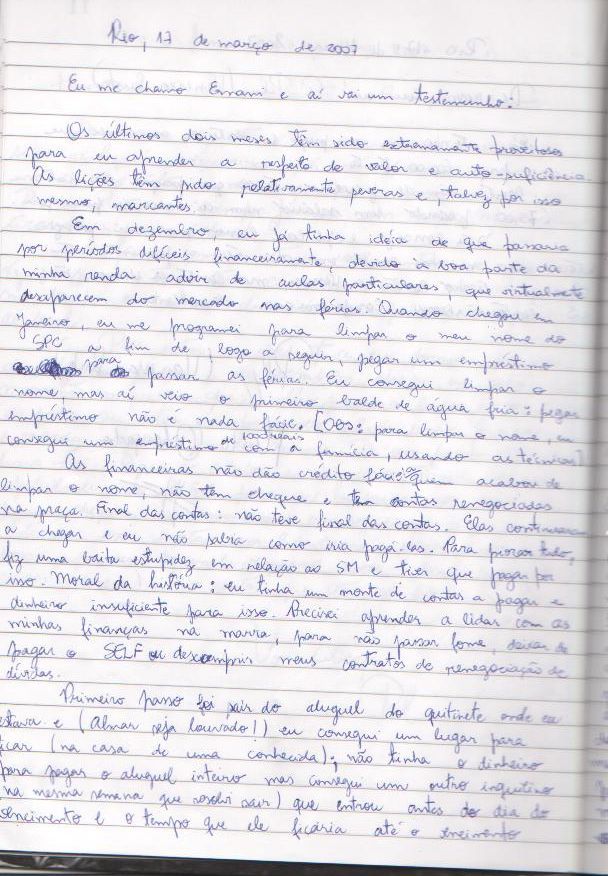 Rio, 17 de março de 2007
Eu me chamo Ernani e aí vai um testemunho:
Os últimos dois meses têm sido extremamente proveitosos
para eu aprender a respeito de valor e auto-suficiência.
As lições têm sido relativamente severas e, talvez por isso
mesmo, marcantes.
Em dezembro eu já tinha idéia de que passaria
por períodos difíceis financeiramente, devido à boa parte da
minha renda advir de aulas particulares, que virtualmente
desaparecem do mercado nas férias. Quando chegou em
Janeiro, eu me programei para limpar o meu nome do
SPC a fim de, logo a seguir, pegar um empréstimo
para passar as férias. Eu consegui limpar o
nome, mas aí veio o primeiro balde de água fria: pegar
empréstimo não é nada fácil. [OBS: para limpar o nome, eu
consegui um empréstimo de reais com a família, usando as técnicas]
As financeiras não dão crédito fácil a quem acabou de
limpar o nome, não tem cheque e tem contas renegociadas
na praça. Final das contas: não teve final das contas. Elas continuaram
a chegar e eu não sabia como iria pagá-las. Para piorar tudo,
fiz uma baita estupidez em relação ao SM e tive que pagar por
isso. Moral da história: eu tinha um monte de contas a pagar e
dinheiro insuficiente para isso. Precisei aprender a lidar com as
minhas finanças na marra, para não passar fome, deixar de
pagar o SELF ou descumprir meus contratos de renegociação de
dívidas.
Primeiro passo foi sair do aluguel do quitinete onde eu
estava e (Almar seja louvado!) eu consegui um lugar para
ficar (na casa de uma conhecida); não tinha o dinheiro
para pagar o aluguel inteiro mas consegui um outro inquilino
na mesma semana que resolvi sair) que entrou antes do dia do
vencimento e o tempo que ele ficaria até o vencimento